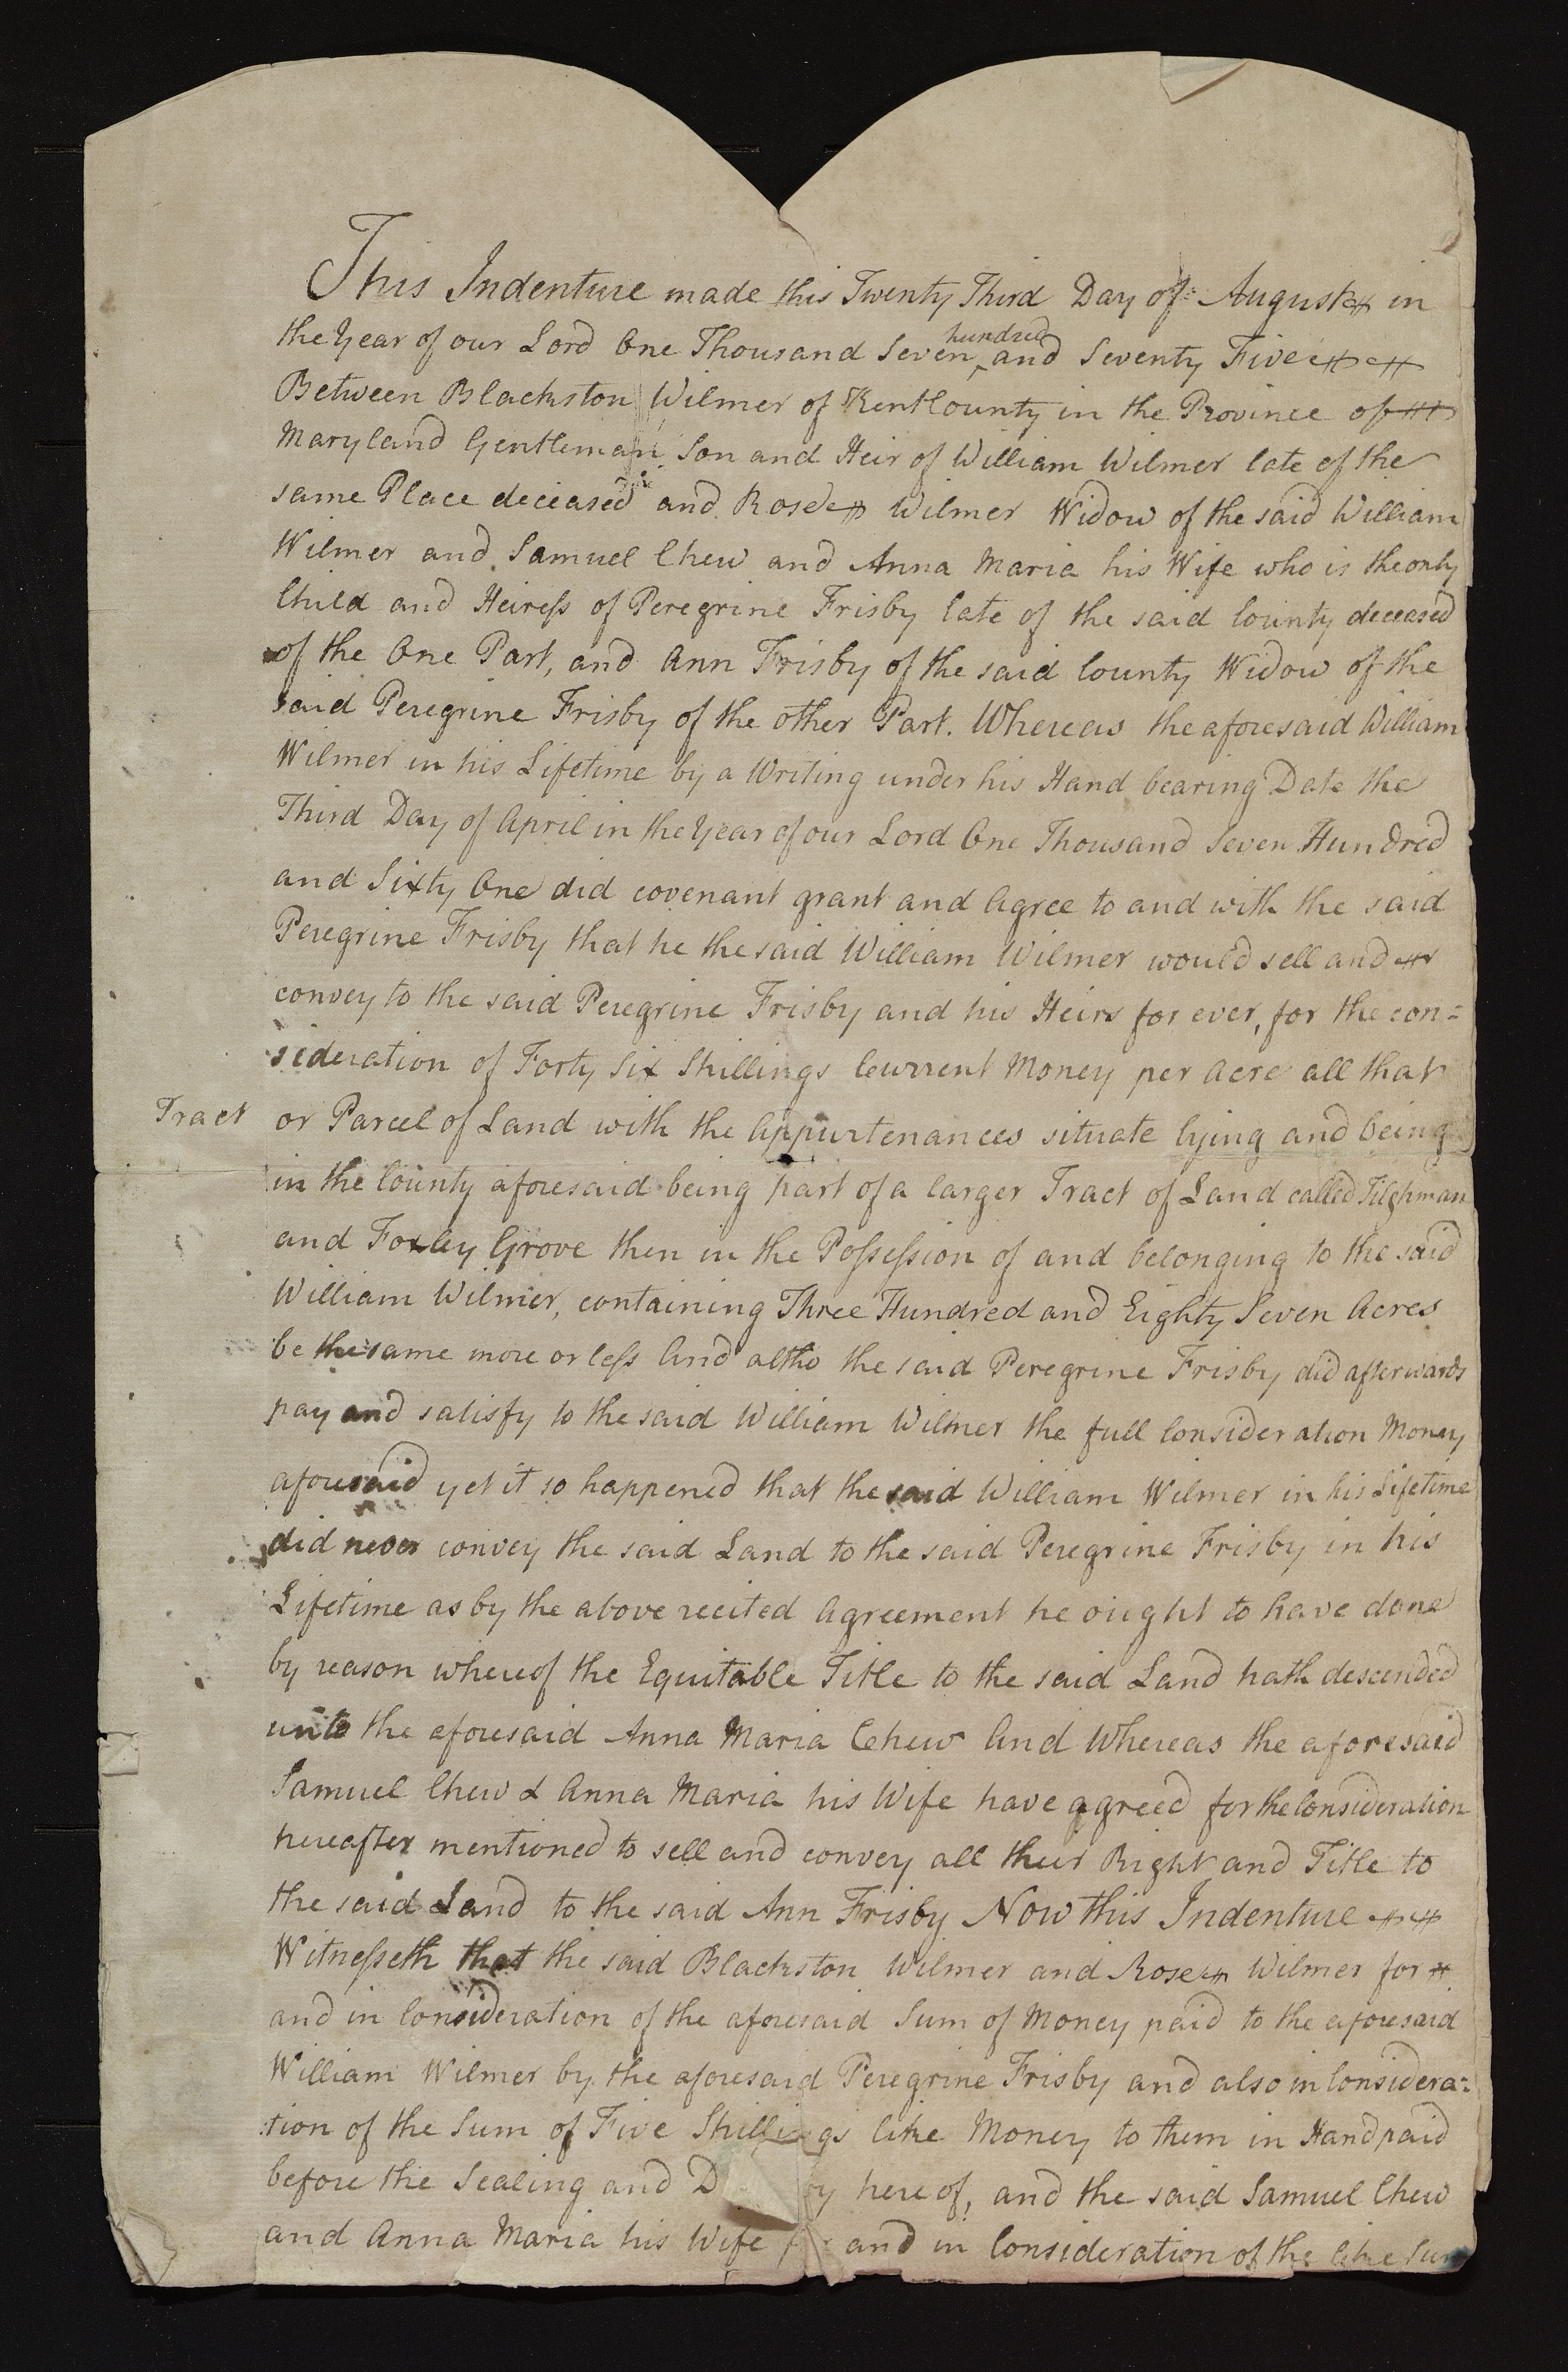 This Indenture made this Twenty Third Day of August in
the Year of our Lord One Thousand Seven hundred and Seventy Five
Between Blackston Wilmer of Kent County in the Province of
Maryland Gentleman Son and Heir of William Wilmer late of the
same Place deceased and Rose Wilmer Widow of the said William
Wilmer and Samuel Chew and Anna Maria his Wife who is the only
Child and Heiress of Peregrine Frisby late of the said County deceased
of the One Part, and Ann Frisby of the said County Widow of the
said Peregrine Frisby of the other Part. Whereas the aforesaid William
Wilmer in his Lifetime by a Writing under his Hand bearing Date the
Third Day of April in the Year of our Lord One Thousand Seven Hundred
and Sixty One did covenant grant and Agree to and with the said
Peregrine Frisby that he the said William Wilmer would sell and
convey to the said Peregrine Frisby and his Heirs for ever, for the con=
sideration of Forty Six Shillings Current Money per Acre all that
Tract or Parcel of Land with the Appurtenances situate lying and being
in the County aforesaid being part of a larger Tract of Land called Tilghman
and Foxley Grove then in the Possession of and belonging to the said
William Wilmer, containing Three Hundred and Eighty Seven Acres
be the same more or less And altho the said Peregrine Frisby did afterwards
pay and satisfy to the said William Wilmer the full Consideration Money
aforesaid yet it so happened that the said William Wilmer in his Lifetime
did never convey the said Land to the said Peregrine Frisby in his
Lifetime as by the above recited Agreement he ought to have done
by reason whereof the Equitable Title to the said Land hath descended
unto the aforesaid Anna Maria Chew And Whereas the aforesaid
Samuel Chew & Anna Maria his Wife have agreed for the Consideration
hereafter mentioned to sell and convey all their Right and Title to
the said Land to the said Ann Frisby Now this Indenture
Witnesseth that the said Blackston Wilmer and Rose Wilmer for
and in Consideration of the aforesaid Sum of Money paid to the aforesaid
William Wilmer by the aforesaid Peregrine Frisby and also in Considera=
tion of the Sum of Five Shillings like Money to them in Hand paid
before the Sealing and D ry here of, and the said Samuel Chew
and Anna Maria his Wife and in Consideration of the like Sum